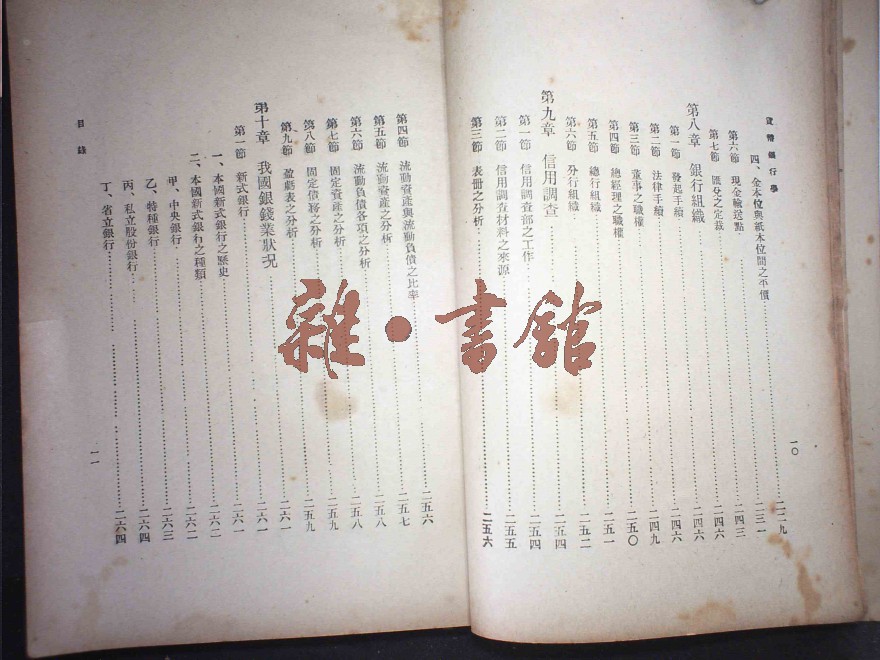 貨幣銀行學
一〇
四、金本位與紙本位間之平價……二二九
第六節 現金輸送點……二三一
第七節 匯兌之定裁……二四三
第八章 銀行組織……二四六
第一節 發起手續……二四六
第二節 法律手續……二四六
第三節 董事之職權……二四九
第四節 總經理之職權……二五〇
第五節 總行組織……二五一
第六節 分行組織……二五二
第九章 信用調查……二五四
第一節 信用調查部之工作……二五四
第二節 信用調查材料之來源……二五五
第三節 表冊之分析……二五六
第四節 流動資產與流動負債之比率……二五六
第五節 流動資產之分析……二五七
第六節 流動負債各項之分析……二五八
第七節 固定資產之分析……二五八
第八節 固定債務之分析……二五九
第九節 盈虧表之分析……二五九
第十章 我國銀錢業狀況……二六一
第一節 新式銀行……二六一
一、本國新式銀行之歷史……二六一
二、本國新式銀行之種類……二六二
甲、中央銀行……二六三
乙、特種銀行……二六三
丙、私立股份銀行……二六四
丁、省立銀行……二六四
目錄
一一
雜·書館